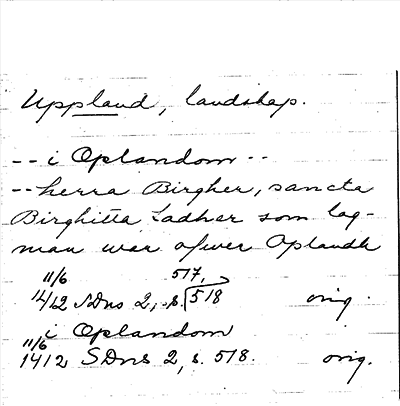 Uppland, landskap.
-- i Oplandom --
-- herra Birgher, sancta
Birghitta Fadher som lag-
man war ofwer Oplandh
11/6 517,
1412 SDns 2, s. 518 orig.
i Oplandom
11/6
1412 SDns 2, s. 518. orig.